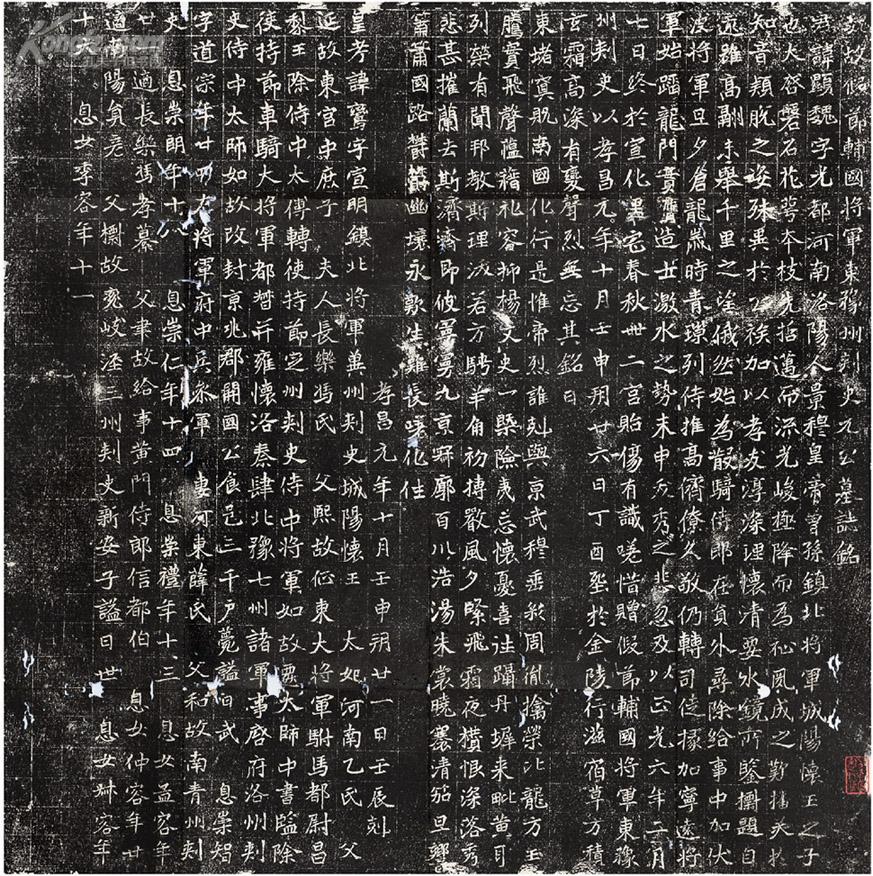 魏故假節輔國將軍東豫州刺史元公墓誌銘
君諱顯魏字光都河南洛陽人景穆皇帝曾孫鎮北將軍城陽懷王之子
也大啓磐石花萼本枝先哲邁而流光峻極降而為祉夙成之歎播美於
知音穎脫之姿殊異於公族加以孝友淳深理懷清要水鏡所鑒標題自
遠雖高翮未舉千里之望俄然始為散騎侍郎在員外尋除給事中加伏
波將軍旦夕倉龍歲時青璅列侍推高儕僚久敬仍轉司徒掾加寧遠將
軍始踏龍門賓實造士激水之勢未申不秀之悲忽及以正光六年二月
七日終於宣化里宅春秋卌二宮貽傷有識嗟惜贈假節輔國將軍東豫
州刺史以孝昌元年十月壬申朔廿六日丁酉塟於金陵行滋宿草方積
玄霜高深有變聲烈無忘其銘曰
東堵寘貺南國化行是惟帝烈誰剋與京武穆垂於周胤擒榮比龍方玉
騰實飛聲蘊藉禮容抑揚文史一槩險夷忘懷憂喜註躡丹墀来毗黄耳
列榮有聞邦教斯理滅若方騁羊角初摶歡風夕緊飛霜夜攢恨深落秀
悲甚摧蘭去斯濟濟即彼寞寞九京野廓百川浩湯朱裳曉褰清笳旦響
簫簫國路鬱鬱幽壤永歎生離長嗟化往
孝昌元年十月壬申朔廿一日壬辰刻
皇考諱鸞字宣明鎮北將軍并州刺史城陽懷王 太妃河南乙氏 父
延故東宮中庶子 夫人長樂馮氏 父熙故征東大將軍駙馬都尉昌
黎王除侍中太傅轉使持節定州刺史侍中將軍如故遷太師中書監除
使持節車騎大將軍都督并雍懷洛秦肆北豫七州諸軍事啓府洛州刺
史侍中太師如故改封京兆郡開國公食邑三千戶薨謚曰武 息崇智
字道宗年廿四左將軍府中兵參軍 妻河東薛氏 父和故南青州刺
史 息崇朗年十八 息崇仁年十四 息崇禮年十三 息女孟容年
廿 適長樂馮孝纂 父聿故給事黄門侍郎信都伯 息女仲容年廿
適南陽員彥 父標故兗岐涇三州刺史新安子謚曰世 息女叔容年
十六 息女季容年十一